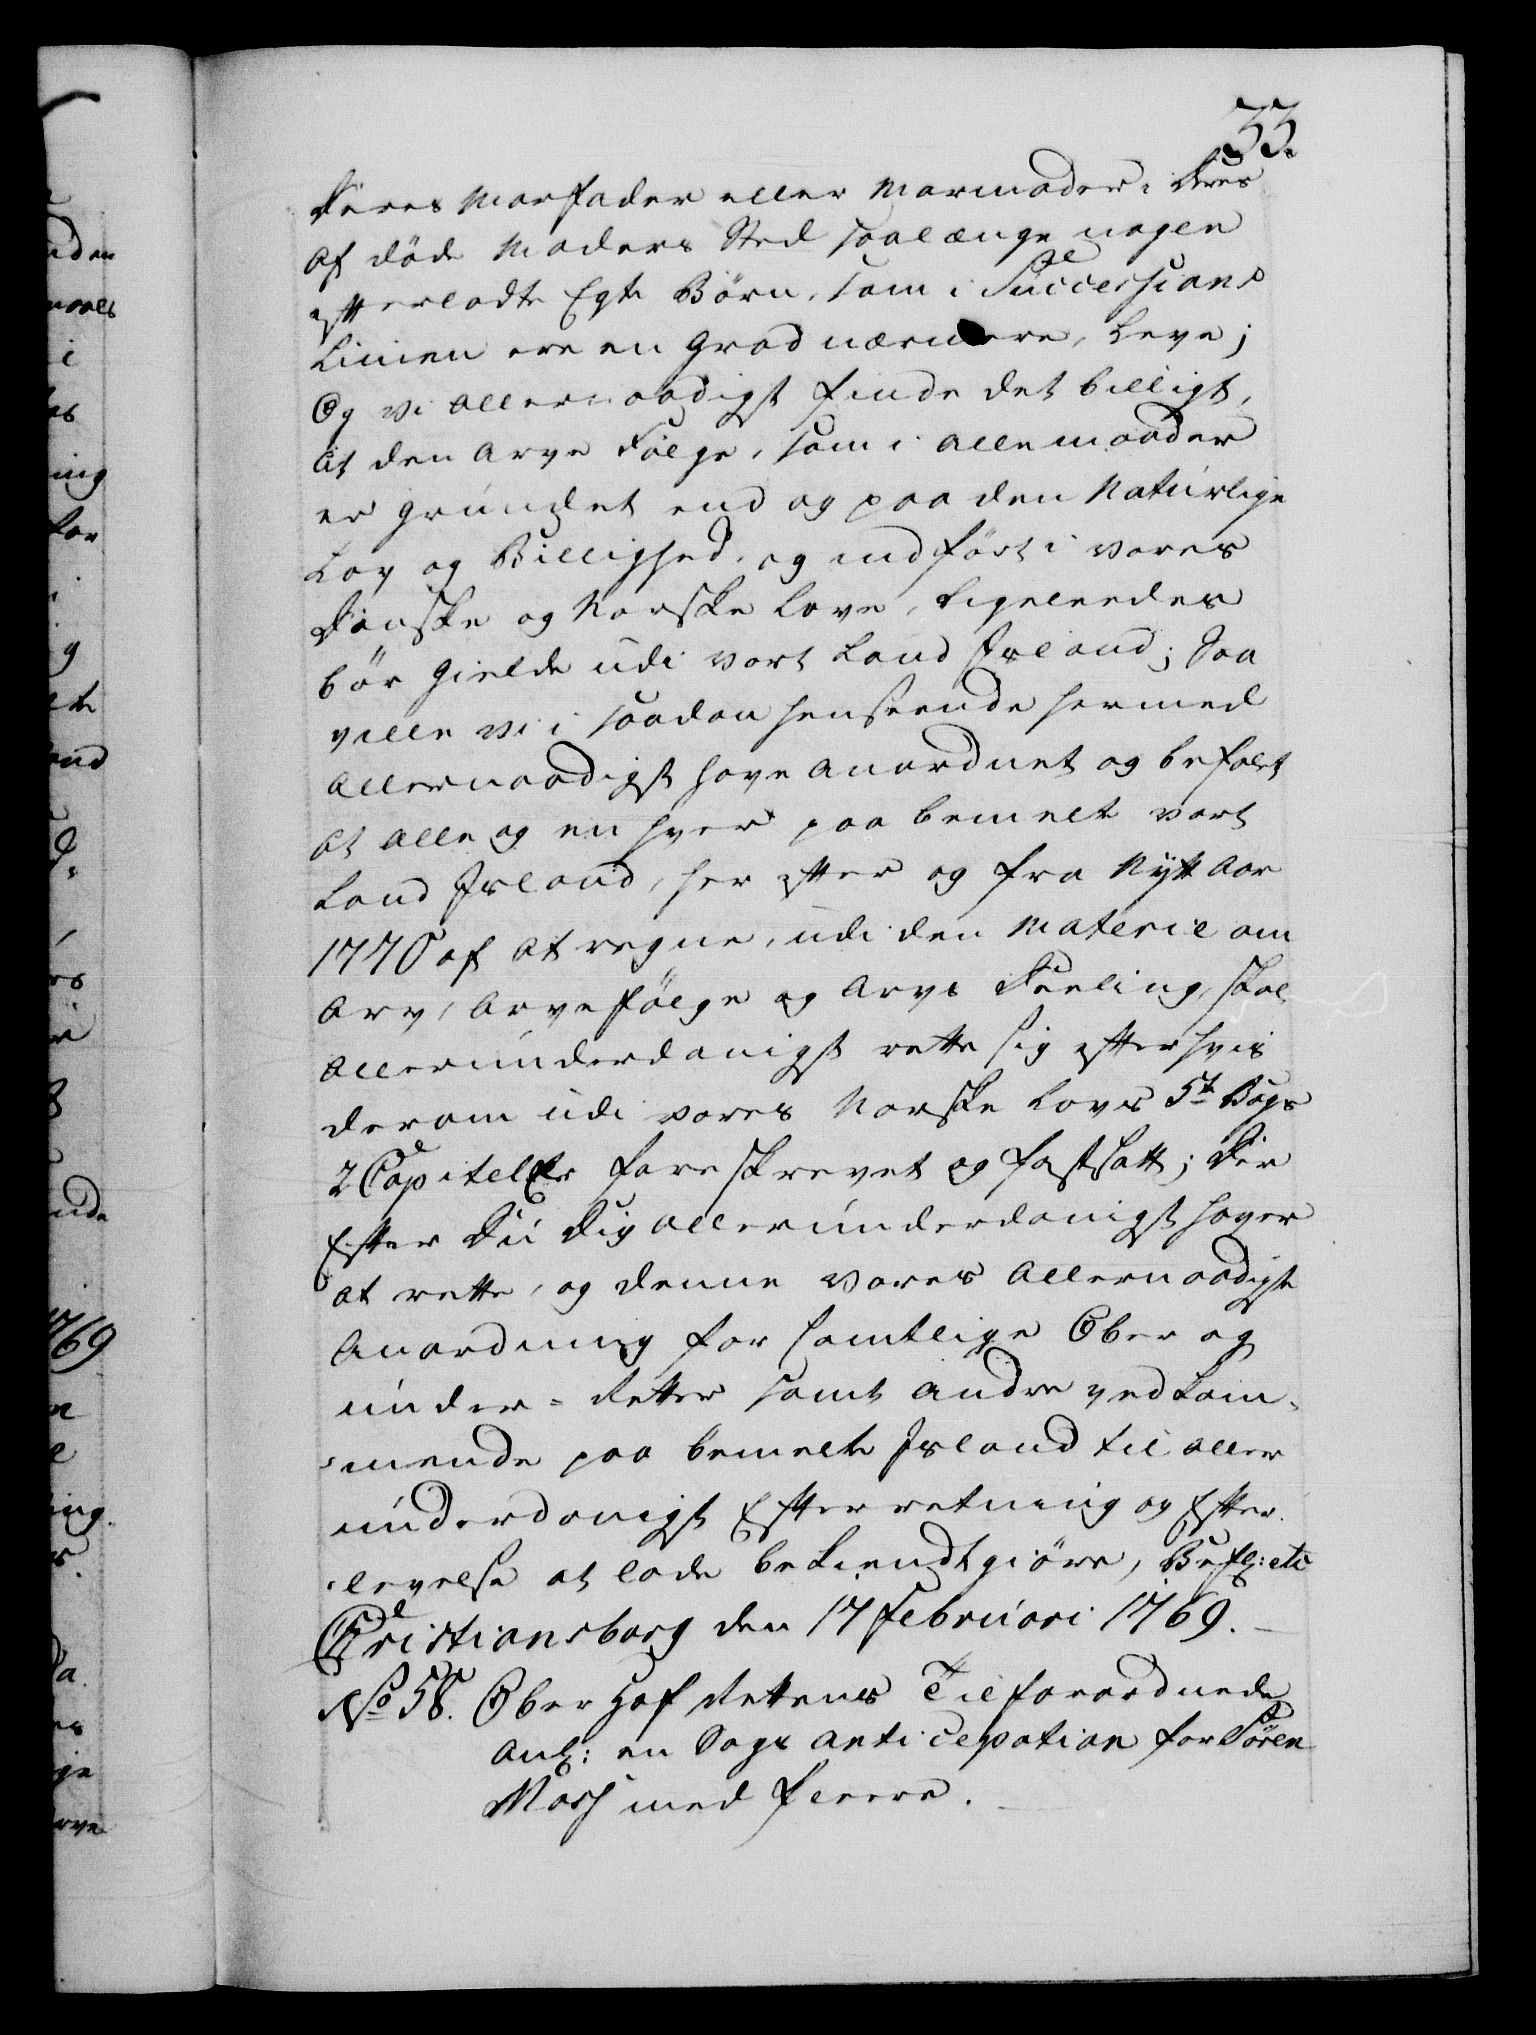 33.
deres Morfader eller Mormoder i deres
af døde Moders Sted saalænge nogen
efterladte Egte Børn, som i Successions
Linien ere en Grad nærmere, leve;
Og vi allernaadigst finde det billigt,
at den Arve Følge, som i alle maader
er grundet end og paa den Naturlige
Lov og Billighed, og indført i vores
Danske og Norske Love, ligeledes
bør gielde udi vort Land Island; Saa
ville vi i saadan henseende hermed
allernaadigst have anordnet og befalet
at alle og en hver paa bemelte vort
Land Island, her efter og fra Nytt Aar
1770 af at regne, udi den Materie om
Arv, Arvefølge og Arvs Deeling, skal
allerunderdanigst rette sig efter hvis
derom udi vores Norske Lovs 5te Bogs
2 Capitel er foreskrevet og fastsatt; Der
Efter Du Dig allerunderdanigst haver
at rette, og denne vores allernaadigste
Anordning for samtlige Ober og
under-Retter samt andre vedkom-
mende paa bemelte Island til aller
underdanigst Efterretning og Efter-
levelse at lade bekiendtgiøre, Befl: etc
Christiansborg den 17 Februari 1769.
No 58. Ober Hof Rettens Tilforordnede
Anl: en Sags anticipation for Sören
Mars med fleere.